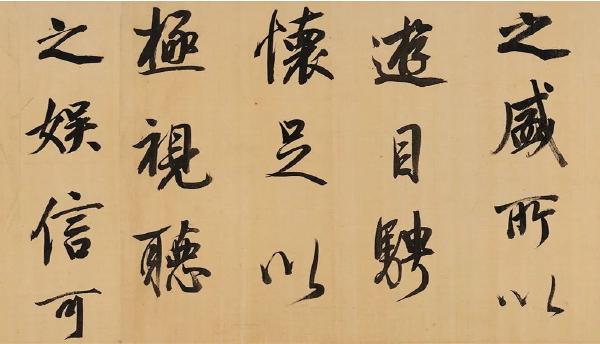 之盛所以
遊目騁
懷足以
極視聽
之娛信可